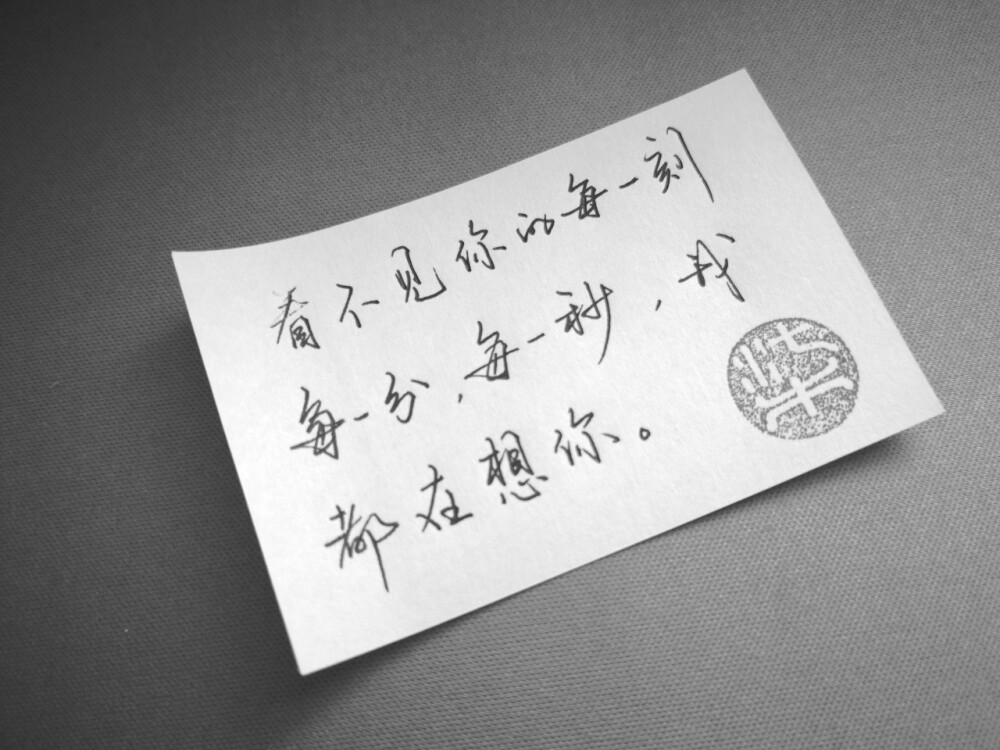 看不见你的每一刻
每一分，每一秒，我
都在想你。
柴